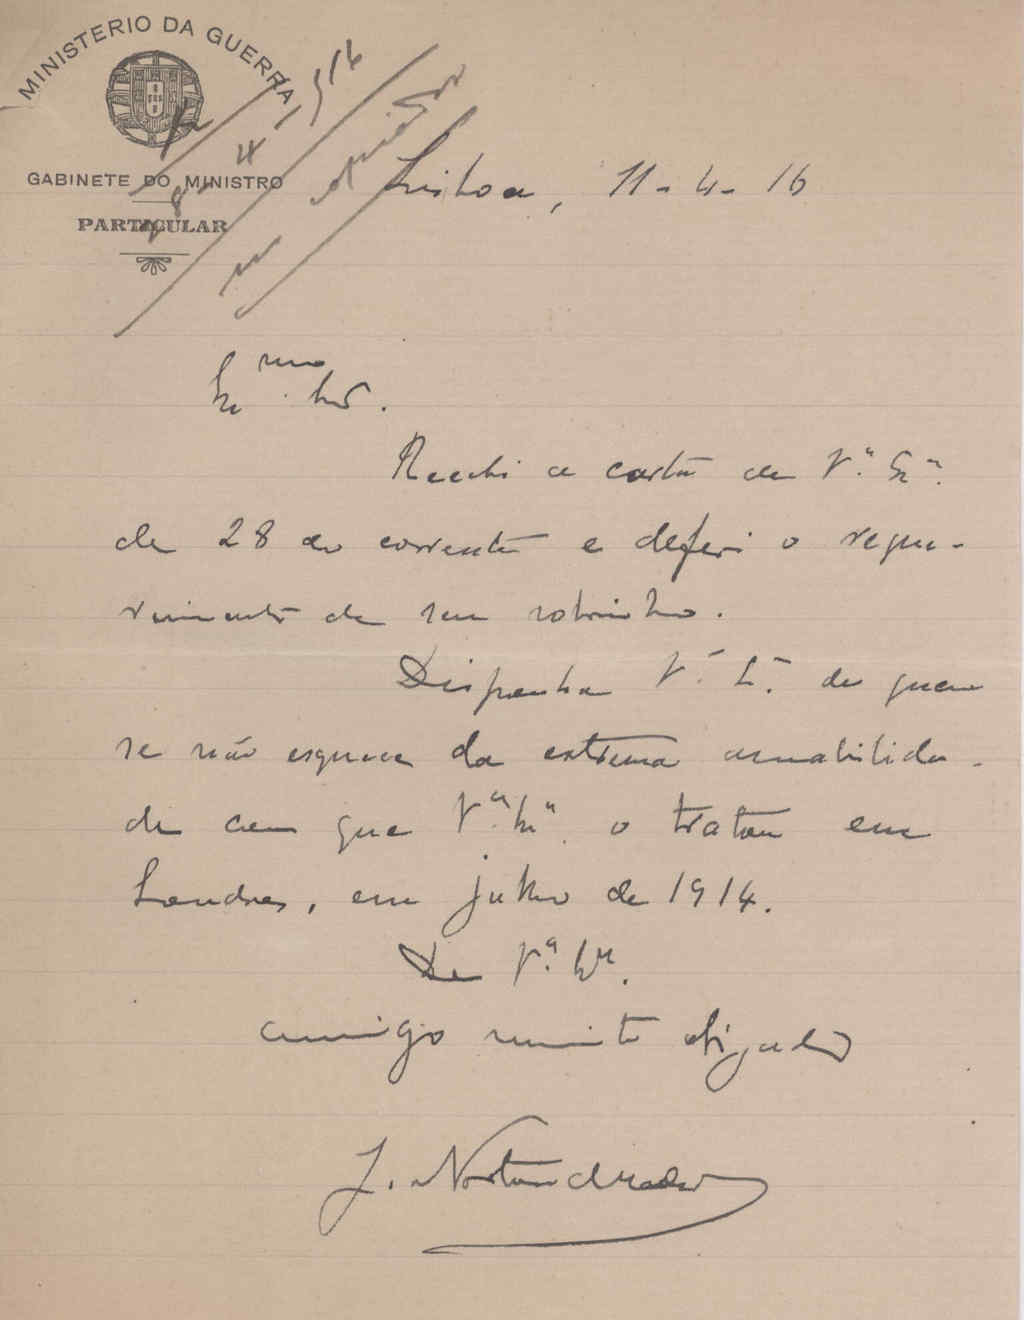 MINISTERIO DA GUERRA
GABINETE DO MINISTRO
PARTICULAR
Lisboa, 11-4-16
Ex.mo Snr.
Recebi a carta de V.ª Ex.ª
de 28 do corrente e deferi o reque-
rimento de seu sobrinho.
Disponha V.ª Ex.ª de quem
se não esquece da extrema amabilida-
de com que V.ª Ex.ª o tratou em
Londres, em julho de 1914.
De V.ª Ex.ª
amigo muito obrigado
J. Norton de Mattos